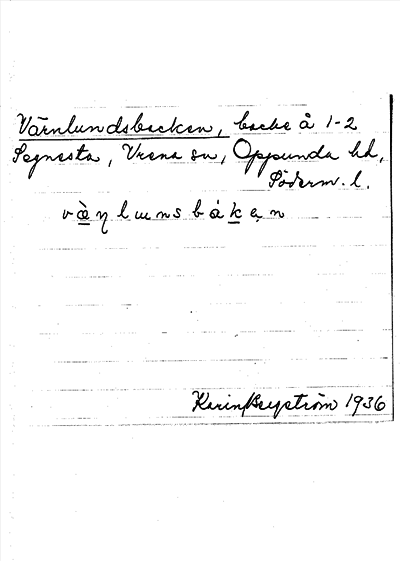 Värnlundsbacken, backe å 1-2
Segnesta, Vrena sn, Oppunda hd,
Söderm. l.
væ̀ɳlɯnsbákən
Karin Bergström 1936